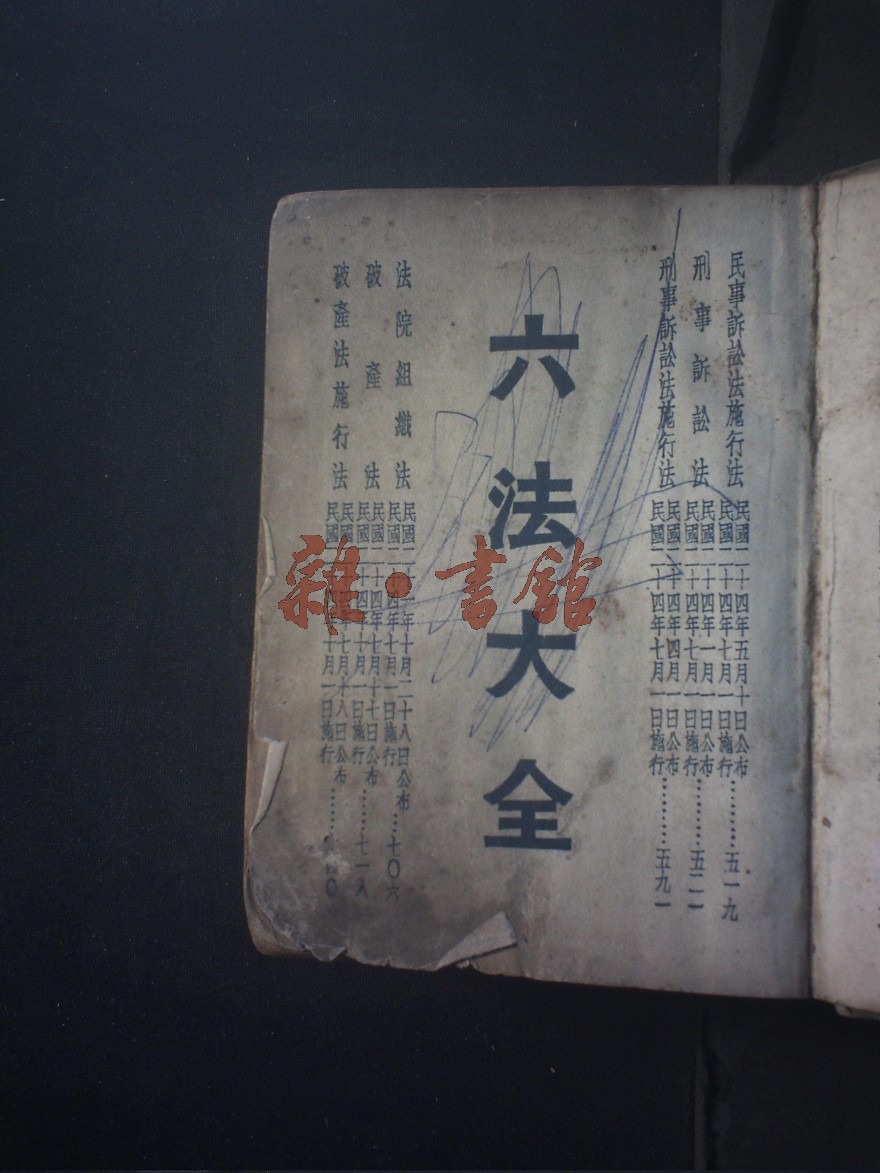 民事訴訟法施行法 民國二十四年五月十日公布 民國二十四年七月一日施行………五一九
刑事訴訟法 民國二十四年一月一日公布 民國二十四年七月一日施行………五二一
刑事訴訟法施行法 民國二十四年四月一日公布 民國二十四年七月一日施行………五九一
六法大全
法院組織法 民國二 年十月二十八日公布 民國二十四年七月一日施行…七〇六
破產法 民國二十四年七月十七日公布 民國二十四年十月一日施行……七一八
破產法施行法 民國二十四年七月十八日公布 民國二十四年十月一日施行……四〇
雜·書館